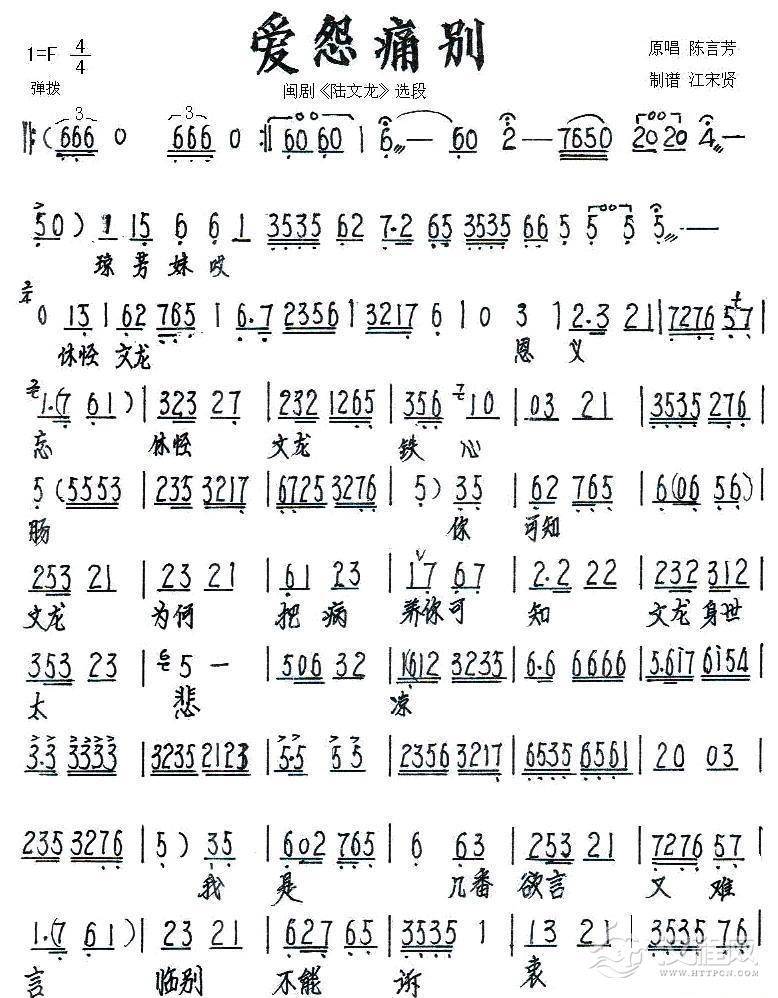 爱怨痛别
1=F 4/4
原唱 陈言芳
弹拨
闽剧《陆文龙》选段
制谱 江宋贤
(666 0 666 0 6060 | 6 — 60 2 — 7650 2020 4 —
50) 1 15 6 6 1 3535 62 7·2 65 3535 66 5 5 5 5 —
琼芳妹哎
0 13 | 62 765 | 6·7 2356 | 3217 6 | 0 3 | 2·3 21 | 7276 57
休怪 文龙 恩 义
1·(7 61) | 323 27 | 232 1265 | 356 10 | 03 21 | 3535 276
忘 休怪 文龙 铁 心
5 (5553 | 235 3217 | 6725 3276 | 5) 35 | 62 765 | 6(06 56)
肠 你 可知
253 21 | 23 21 | 61 23 | 17 67 | 2·2 22 | 232 312
文龙 为何 把 病 养你可 知 文龙身世
353 23 | 5 — | 506 32 | 1612 3235 | 6·6 6666 | 5·617 6154
太 悲 凉
3·3 3333 | 3235 2123 | 5·5 55 | 2356 3217 | 6535 6561 | 20 03
235 3276 | 5) 35 | 602 765 | 6 63 | 253 21 | 7276 57
我 是 几番 欲言 又 难
1·(7 61) | 23 21 | 627 65 | 3535 1 | 13 21 | 3535 76
言 临别 不能 诉 衷
WWW.HTTPCN.COM